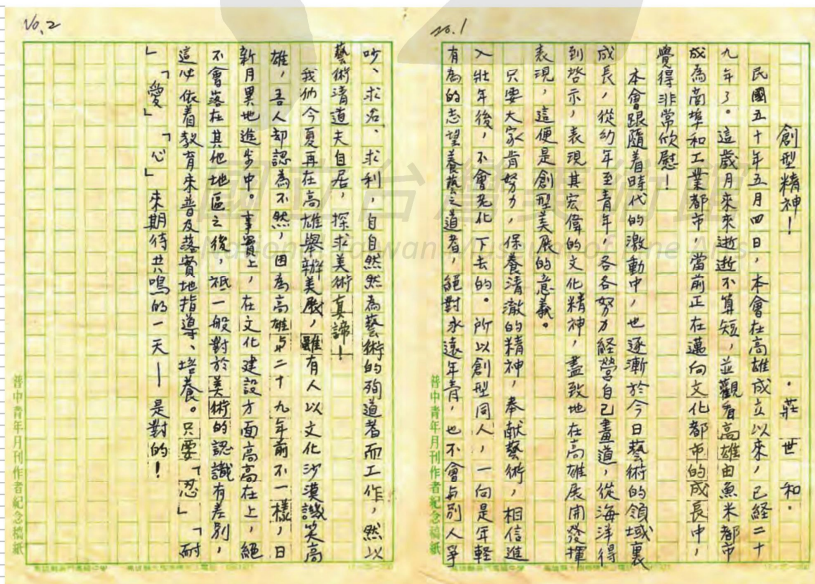 no.1
創型精神!
·莊世和·
民國五十年五月四日,本會在高雄成立以來,已經二十
九年了。這歲月來來逝逝不算短,並觀看高雄由魚米都市
成為商埠和工業都市,當前正在邁向文化都市的成長中,
覺得非常欣慰!
本會跟隨着時代的激動中,也逐漸於今日藝術的領域裏
成長,從幼年至青年,各各努力経營自己畫道,從海洋得
到啓示,表現其宏偉的文化精神,盡致地在高雄展開發揮
表現,這便是創型美展的意義。
只要大家肯努力,保養清澈的精神,奉献藝術,相信進
入壯年後,不會老化下去的。所以創型同人,一向是年輕
有為的志望養藝之道者,絕對永遠年青,也不會与別人爭
普中青年月刊作者紀念稿紙
No.2
吵、求名、求利,自自然然為藝術的殉道者而工作,然以
藝術清道夫自居,探求美術真諦!
我們今夏再在高雄舉辦美展,雖有人以文化沙漠譏笑高
雄,吾人却認為不然,因為高雄与二十九年前不一樣,日
新月異地進步中。事實上,在文化建設方面高高在上,絕
不會落在其他地區之後,祇一般對於美術的認識有差別,
這必依着教育來普及落實地指導、培養。只要「忍」「耐
」「愛」「心」來期待共鳴的一天—是對的!
普中青年月刊作者紀念稿紙
國立台灣美術館
National Taiwan Museum of Fine Arts